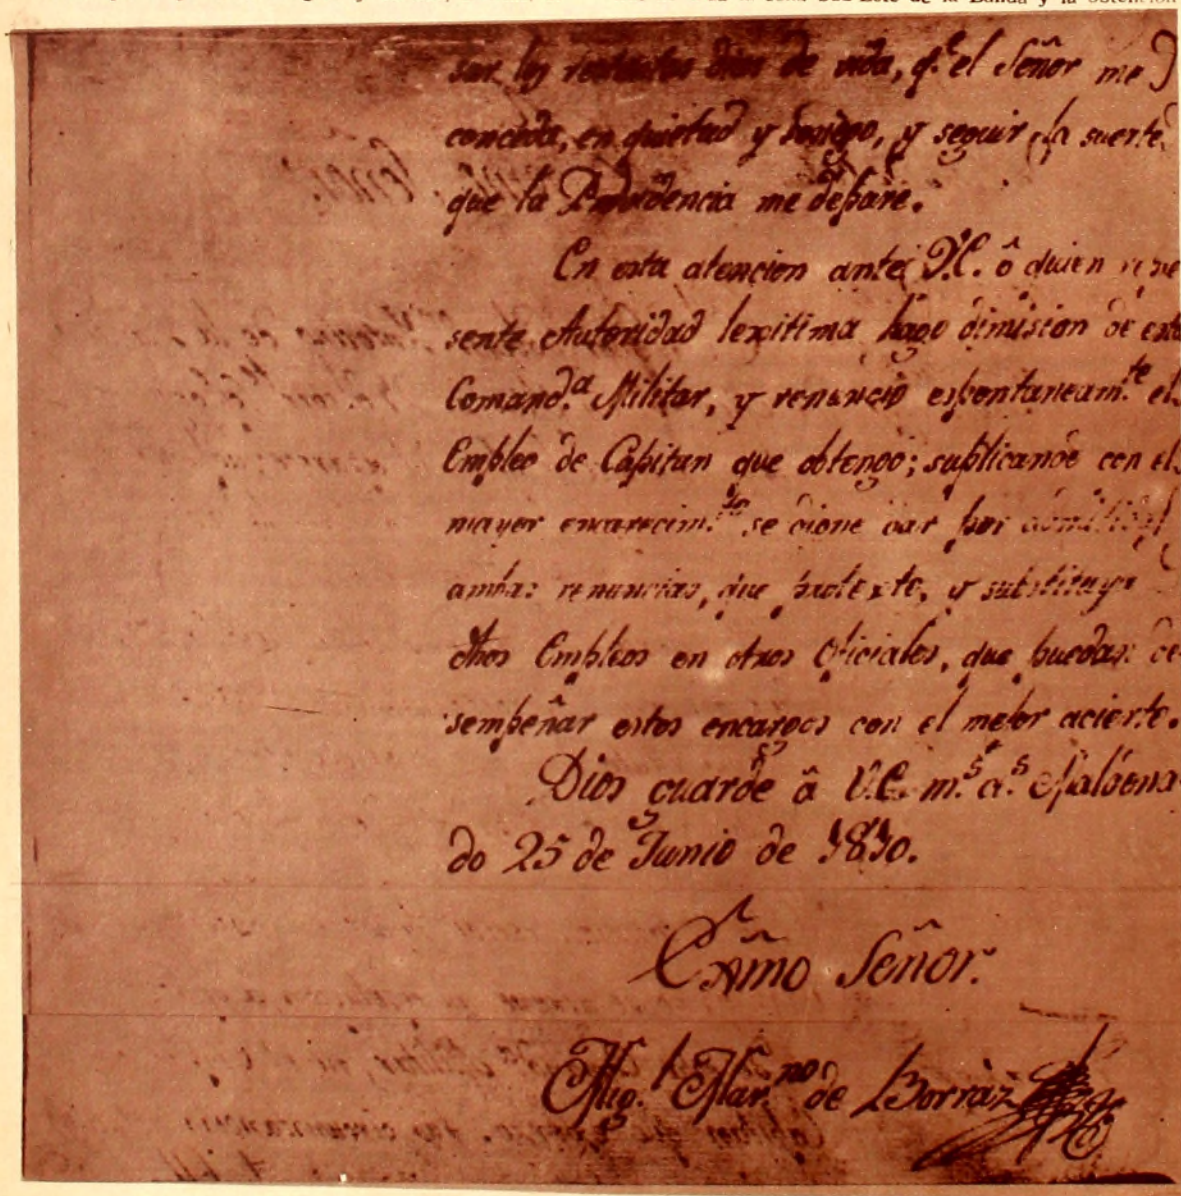 de la Banda y la obtención
sar los restantes dias de vida, q.e el Señor me
conceda, en quietud y sosiego, y seguir la suerte,
que la Providencia me depare.
En esta atencion ante V.E. ô quien repre
sente Autoridad lexitima hago dimision de esta
Comand.a Militar, y renuncio espontaneam.te el
Empleo de Capitan que obtengo; suplicando con el
mayor encarecim.to se digne dar por admitidas
ambas renuncias, que protexto, y substituya
dhos Empleos en otros Oficiales, que puedan de
sempeñar estos encargos con el mejor acierto.
Dios guarde â V.E. m.s a.s Maldona
do 25 de Junio de 1810.
Exmô Señor.
Mig.l Mar.no de Borràz